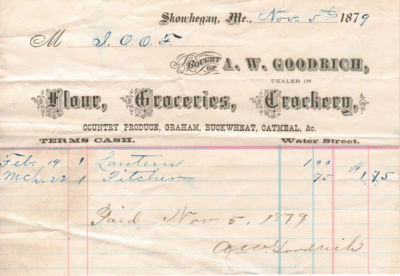 Skowhegan, Me., Nov. 5th 1879
M I.O.O.F.
BOUGHT OF A. W. GOODRICH,
DEALER IN
Flour, Groceries, Crockery,
COUNTRY PRODUCE, GRAHAM, BUCKWHEAT, OATMEAL, &c.
TERMS CASH. Water Street.
Feb. 19 1 Lantern 1 00
Mch. 22 1 Pitcher 75 1,75
Paid Nov 5, 1879
A.W. Goodrich